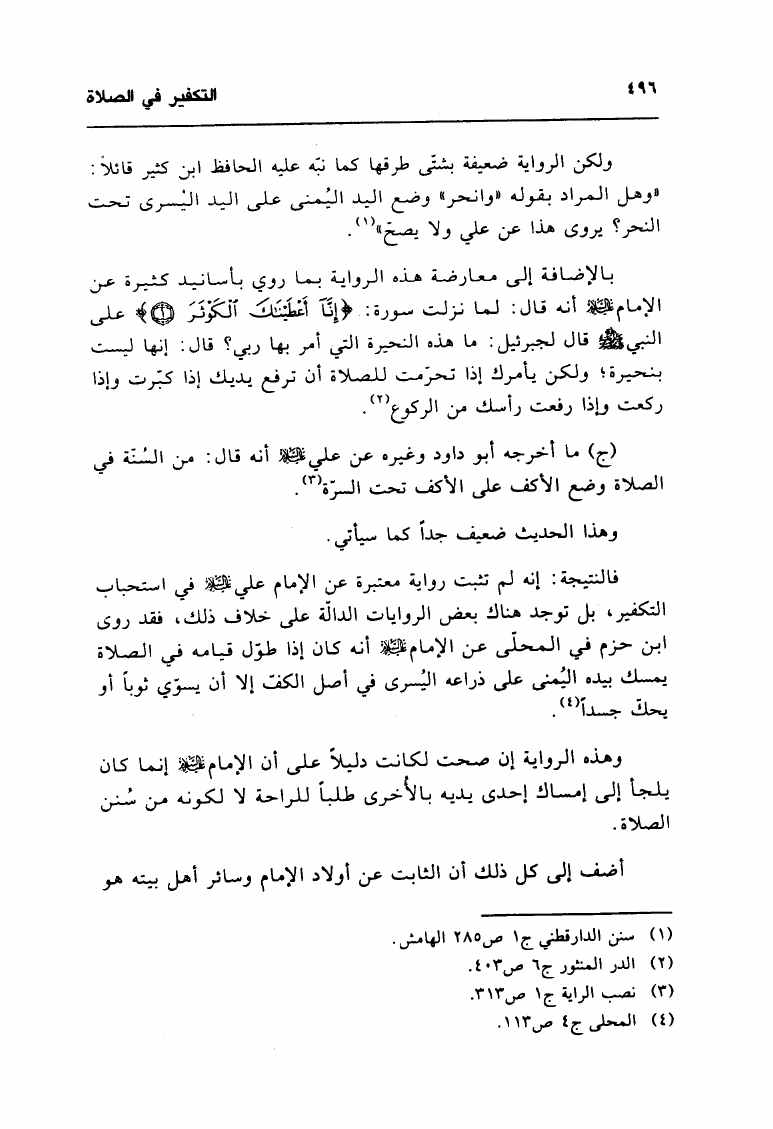 ٤٩٦
التكفير في الصلاة
ولكن الرواية ضعيفة بشتّى طرقها كما نبّه عليه الحافظ ابن كثير قائلاً:
«وهل المراد بقوله «وانحر» وضع اليد اليُمنى على اليد اليُسرى تحت
النحر؟ يروى هذا عن علي ولا يصحّ»(١).
بالإضافة إلى معارضة هذه الرواية بما روي بأسانيد كثيرة عن
الإمام عليه السلام أنه قال: لما نزلت سورة: ﴿إِنَّآ أَعْطَيْنَـٰكَ ٱلْكَوْثَرَ ۝١﴾ على
النبي ﷺ قال لجبرئيل: ما هذه النحيرة التي أمر بها ربي؟ قال: إنها ليست
بنحيرة؛ ولكن يأمرك إذا تحرّمت للصلاة أن ترفع يديك إذا كبّرت وإذا
ركعت وإذا رفعت رأسك من الركوع(٢).
(ج) ما أخرجه أبو داود وغيره عن علي عليه السلام أنه قال: من السُنّة في
الصلاة وضع الأكف على الأكف تحت السرّة(٣).
وهذا الحديث ضعيف جداً كما سيأتي.
فالنتيجة: إنه لم تثبت رواية معتبرة عن الإمام علي عليه السلام في استحباب
التكفير، بل توجد هناك بعض الروايات الدالّة على خلاف ذلك، فقد روى
ابن حزم في المحلّى عن الإمام عليه السلام أنه كان إذا طوّل قيامه في الصلاة
يمسك بيده اليُمنى على ذراعه اليُسرى في أصل الكفّ إلا أن يسوّي ثوباً أو
يحكّ جسداً(٤).
وهذه الرواية إن صحت لكانت دليلاً على أن الإمام عليه السلام إنما كان
يلجأ إلى إمساك إحدى يديه بالأُخرى طلباً للراحة لا لكونه من سُنن
الصلاة.
أضف إلى كل ذلك أن الثابت عن أولاد الإمام وسائر أهل بيته هو
(١) سنن الدارقطني ج١ ص٢٨٥ الهامش.
(٢) الدر المنثور ج٦ ص٤٠٣.
(٣) نصب الراية ج١ ص٣١٣.
(٤) المحلى ج٤ ص١١٣.